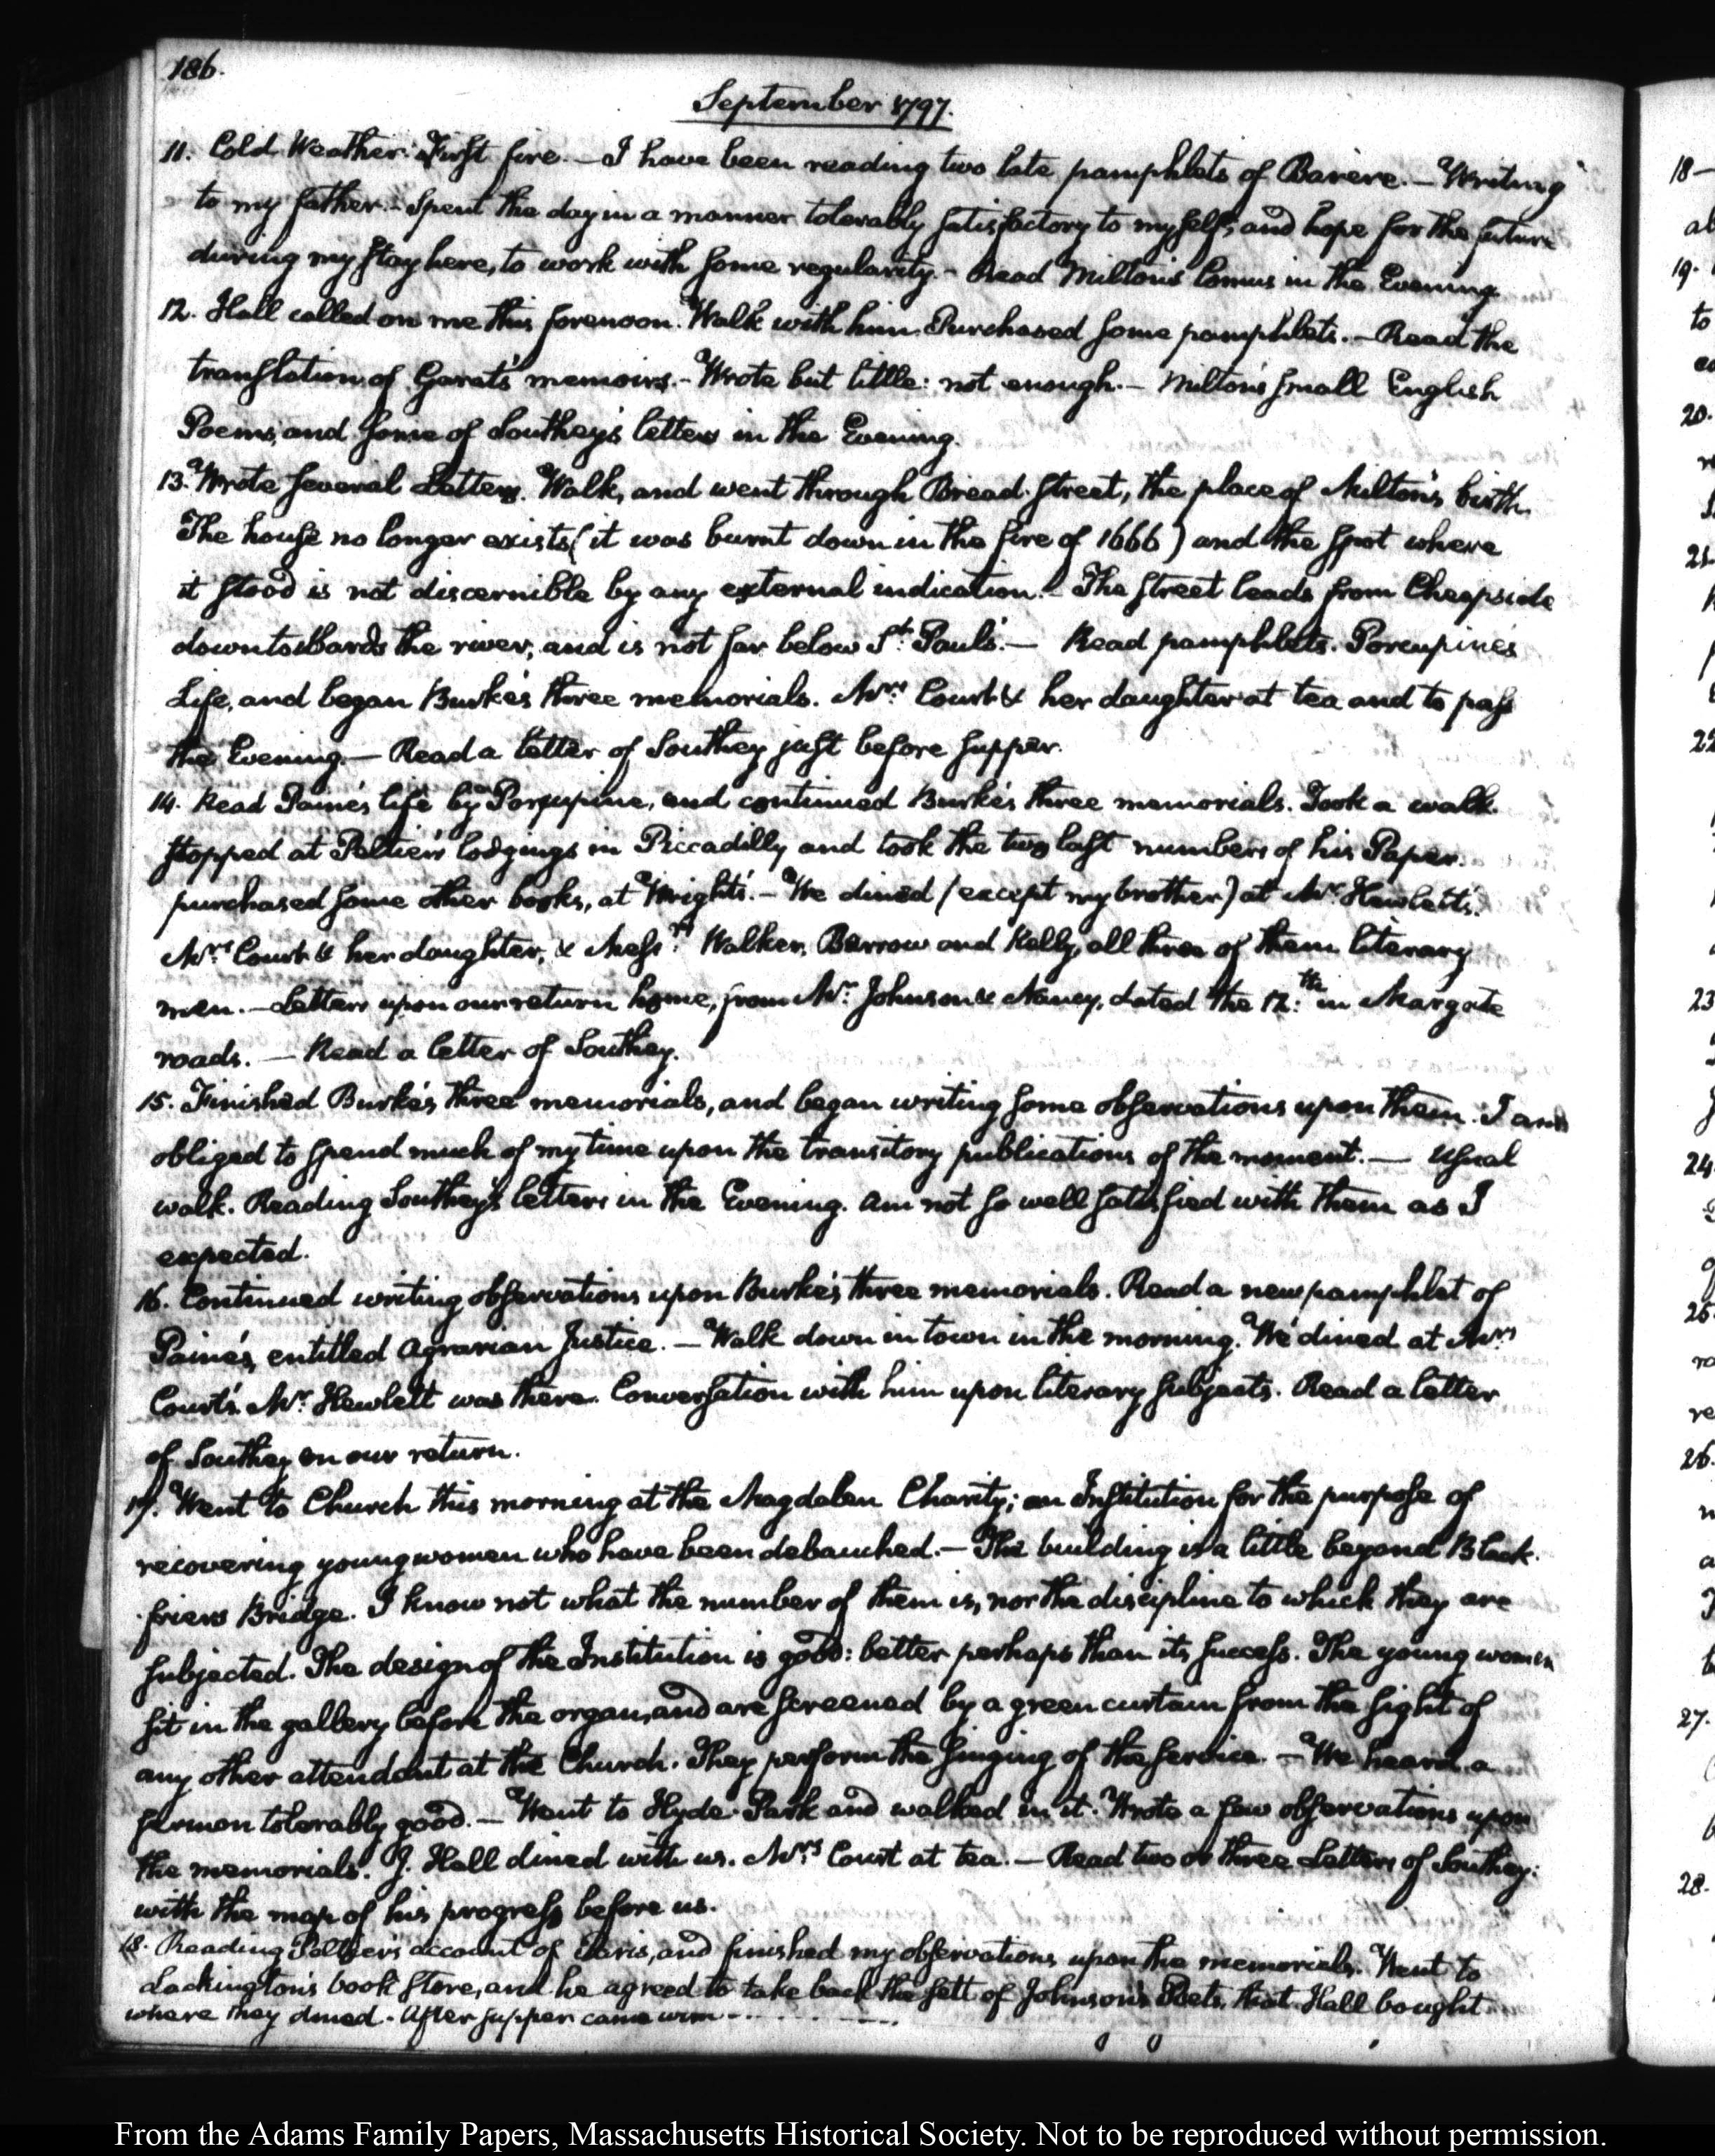 186.
September 1797.
11. Cold Weather. First fire. — I have been reading two late pamphlets of Barere. — Writing
to my father. - Spent the day in a manner tolerably satisfactory to myself, and hope for the future
during my stay here, to work with some regularity. - Read Milton's Comus in the Evening
12. Hall called on me this forenoon. Walk with him. Purchased some pamphlets. — Read the
translation of Garat's memoirs. - Wrote but little: not enough. — Milton's small English
Poems, and some of Southey's letters in the Evening.
13. Wrote several Letters. Walk, and went through Bread-Street, the place of Milton's birth.
The house no longer exists (it was burnt down in the fire of 1666) and the spot where
it stood is not discernible by any external indication. - The street leads from Cheapside
down towards the river, and is not far below St. Paul's. — Read pamphlets. Porcupine's
Life, and began Burke's three memorials. Mrs. Court & her daughter at tea and to pass
the Evening. — Read a letter of Southey just before supper.
14. Read Paine's life by Porcupine, and continued Burke's three memorials. Took a walk.
stopped at Peltier's lodgings in Piccadilly and took the two last numbers of his Paper.
purchased some other books, at Wright's. — We dined (except my brother) at Mr. Hewlett's.
Mrs. Court & her daughter, & Messrs. Walker, Barrow and Kelly, all three of them literary
men. — Letters upon our return home, from Mr. Johnson & Nancy, dated the 12th. in Margate
roads. — Read a letter of Southey.
15. Finished Burke's three memorials, and began writing some observations upon them. I am
obliged to spend much of my time upon the transitory publications of the moment. — Usual
walk. Reading Southey's letters in the Evening. Am not so well satisfied with them as I
expected.
16. Continued writing observations upon Burke's three memorials. Read a new pamphlet of
Paine's, entitled Agrarian Justice. — Walk down in town in the morning. We dined at Mrs.
Court's. Mr. Hewlett was there. Conversation with him upon literary subjects. Read a letter
of Southey on our return.
17. Went to Church this morning at the Magdalen Charity; an Institution for the purpose of
recovering young women who have been debauched. — The building is a little beyond Black-
-friers Bridge. I know not what the number of them is, nor the discipline to which they are
subjected. The design of the Institution is good: better perhaps than its success. The young women
sit in the gallery before the organ, and are screened by a green curtain from the sight of
any other attendant at the Church. They perform the singing of the service. — We heard a
sermon tolerably good. — Went to Hyde-Park and walked in it. Wrote a few observations upon
the memorials. J. Hall dined with us. Mrs. Court at tea. — Read two or three Letters of Southey:
with the map of his progress before us.
18. Reading Peltier's account of Paris, and finished my observations upon the memorials. Went to
Lackington's book store, and he agreed to take back the sett of Johnson's Poets, that Hall bought
where they dined. After supper came
18 —
19.
to
20.
21.
22
23
24.
25.
re
26.
27.
28.
From the Adams Family Papers, Massachusetts Historical Society. Not to be reproduced without permission.